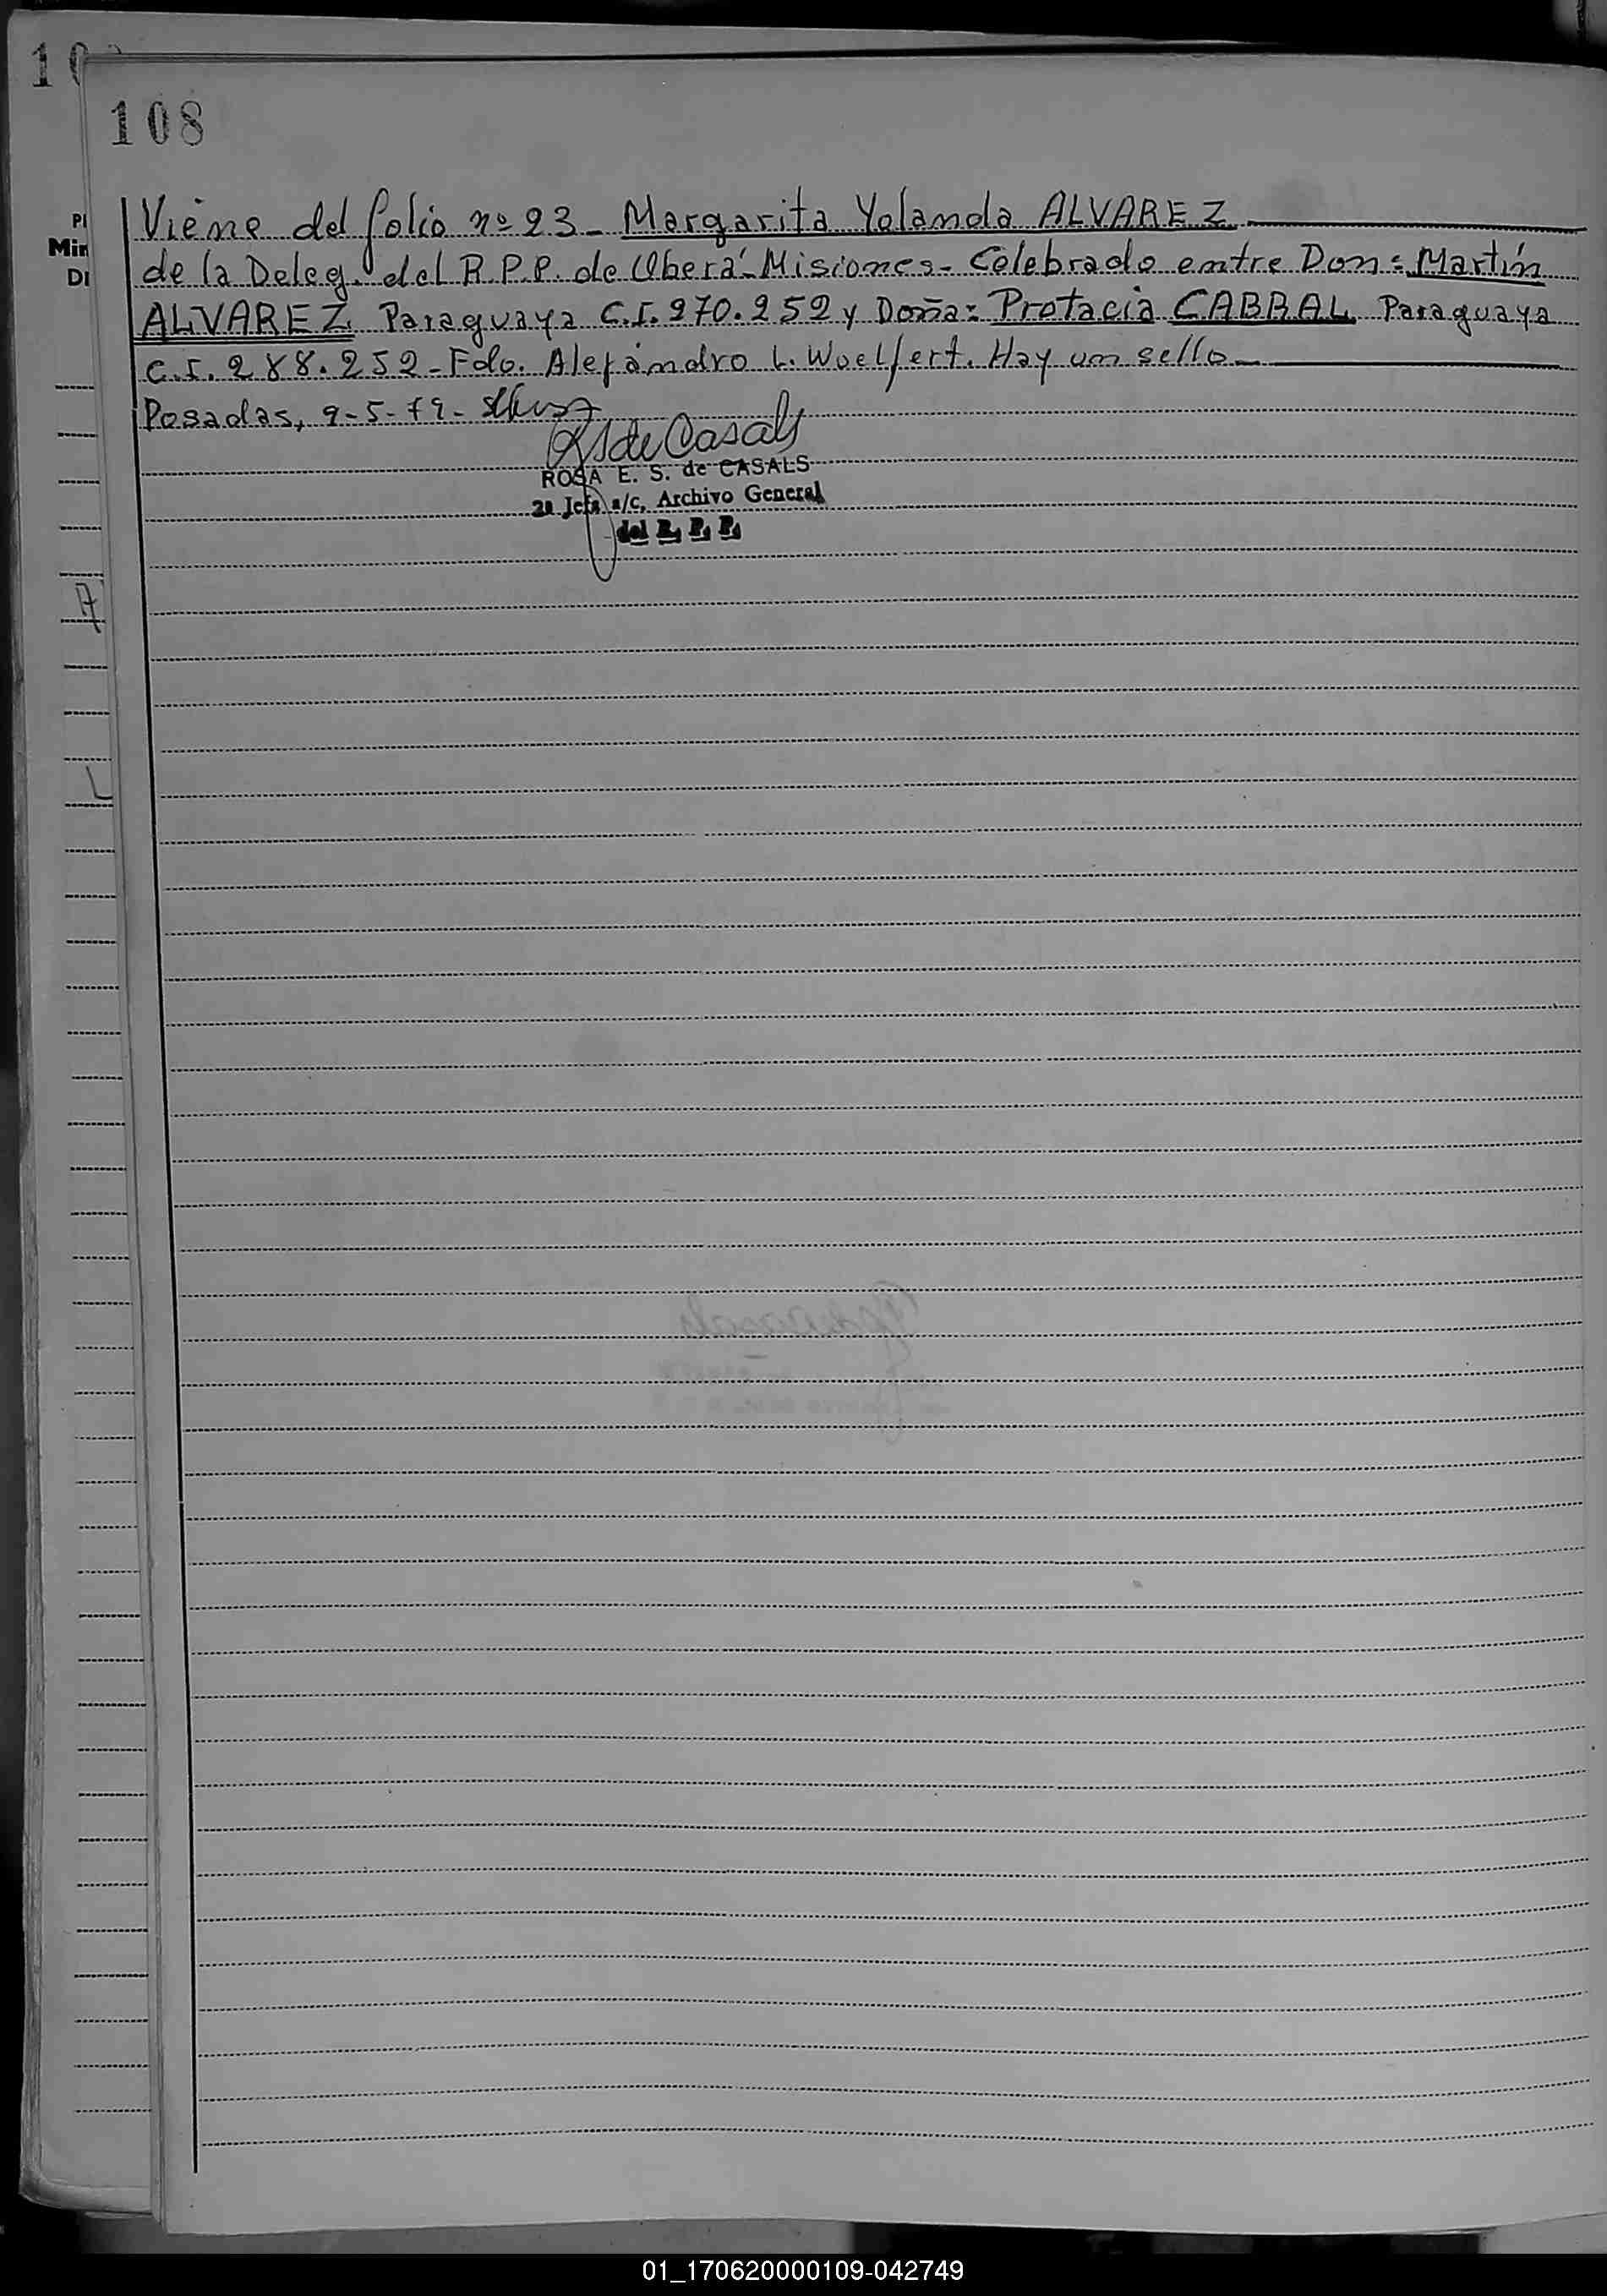 10
108
Pl
Min
DI
Viene del folio nº 23 - Margarita Yolanda ALVAREZ
de la Deleg. del R.P.P. de Oberá - Misiones - Celebrado entre Don: Martín
ALVAREZ Paraguaya C.I. 270.252 y Doña: Protacia CABRAL Paraguaya
C.I. 288.252 - Fdo. Alejandro L. Woelfert. Hay un sello
Posadas, 9-5-79-
RSdeCasals
ROSA E. S. de CASALS
2a Jefa a/c, Archivo General
del R. P. P.
01_170620000109-042749